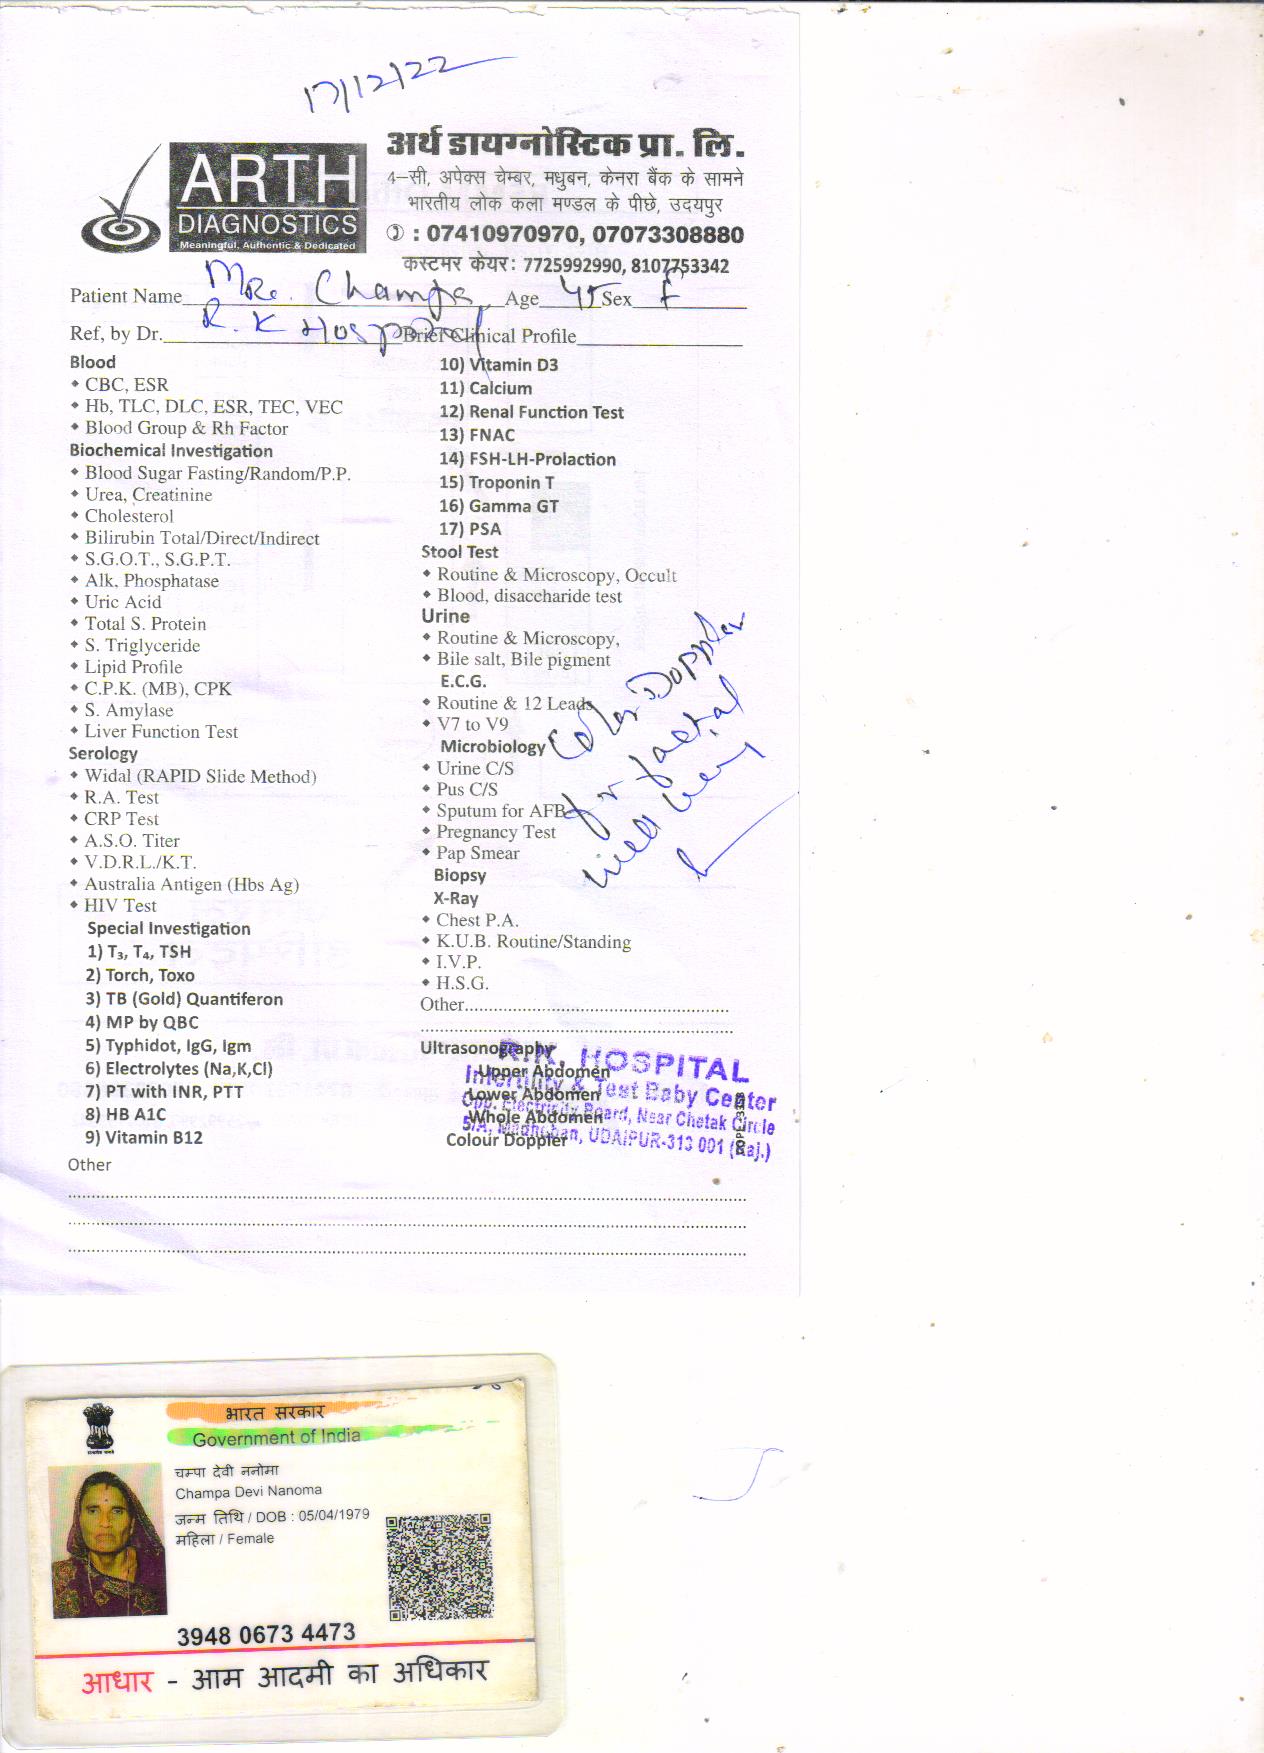 17/12/22
ARTH
DIAGNOSTICS
Meaningful, Authentic & Dedicated
अर्थ डायग्नोस्टिक प्रा. लि.
4–सी, अपेक्स चेम्बर, मधुबन, केनरा बैंक के सामने
भारतीय लोक कला मण्डल के पीछे, उदयपुर
: 07410970970, 07073308880
कस्टमर केयर: 7725992990, 8107753342
Patient Name Mrs. Champa Age 45 Sex F
Ref, by Dr. R. K Hospital Brief Clinical Profile
Blood
CBC, ESR
Hb, TLC, DLC, ESR, TEC, VEC
Blood Group & Rh Factor
Biochemical Investigation
Blood Sugar Fasting/Random/P.P.
Urea, Creatinine
Cholesterol
Bilirubin Total/Direct/Indirect
S.G.O.T., S.G.P.T.
Alk. Phosphatase
Uric Acid
Total S. Protein
S. Triglyceride
Lipid Profile
C.P.K. (MB), CPK
S. Amylase
Liver Function Test
Serology
Widal (RAPID Slide Method)
R.A. Test
CRP Test
A.S.O. Titer
V.D.R.L./K.T.
Australia Antigen (Hbs Ag)
HIV Test
Special Investigation
1) T₃, T₄, TSH
2) Torch, Toxo
3) TB (Gold) Quantiferon
4) MP by QBC
5) Typhidot, IgG, Igm
6) Electrolytes (Na,K,Cl)
7) PT with INR, PTT
8) HB A1C
9) Vitamin B12
Other
10) Vitamin D3
11) Calcium
12) Renal Function Test
13) FNAC
14) FSH-LH-Prolaction
15) Troponin T
16) Gamma GT
17) PSA
Stool Test
Routine & Microscopy, Occult
Blood, disaccharide test
Urine
Routine & Microscopy,
Bile salt, Bile pigment
E.C.G.
Routine & 12 Leads
V7 to V9
Microbiology
Urine C/S
Pus C/S
Sputum for AFB
Pregnancy Test
Pap Smear
Biopsy
X-Ray
Chest P.A.
K.U.B. Routine/Standing
I.V.P.
H.S.G.
Other
Ultrasonography
Upper Abdomen
Lower Abdomen
Whole Abdomen
Colour Doppler
Color Doppler
for faetal
well being
R.K. HOSPITAL
Infertility & Test Baby Center
Opp. Electricity Board, Near Chetak Circle
5/A, Madhuban, UDAIPUR-313 001 (Raj.)
भारत सरकार
Government of India
चम्पा देवी ननोमा
Champa Devi Nanoma
जन्म तिथि / DOB : 05/04/1979
महिला / Female
3948 0673 4473
आधार - आम आदमी का अधिकार